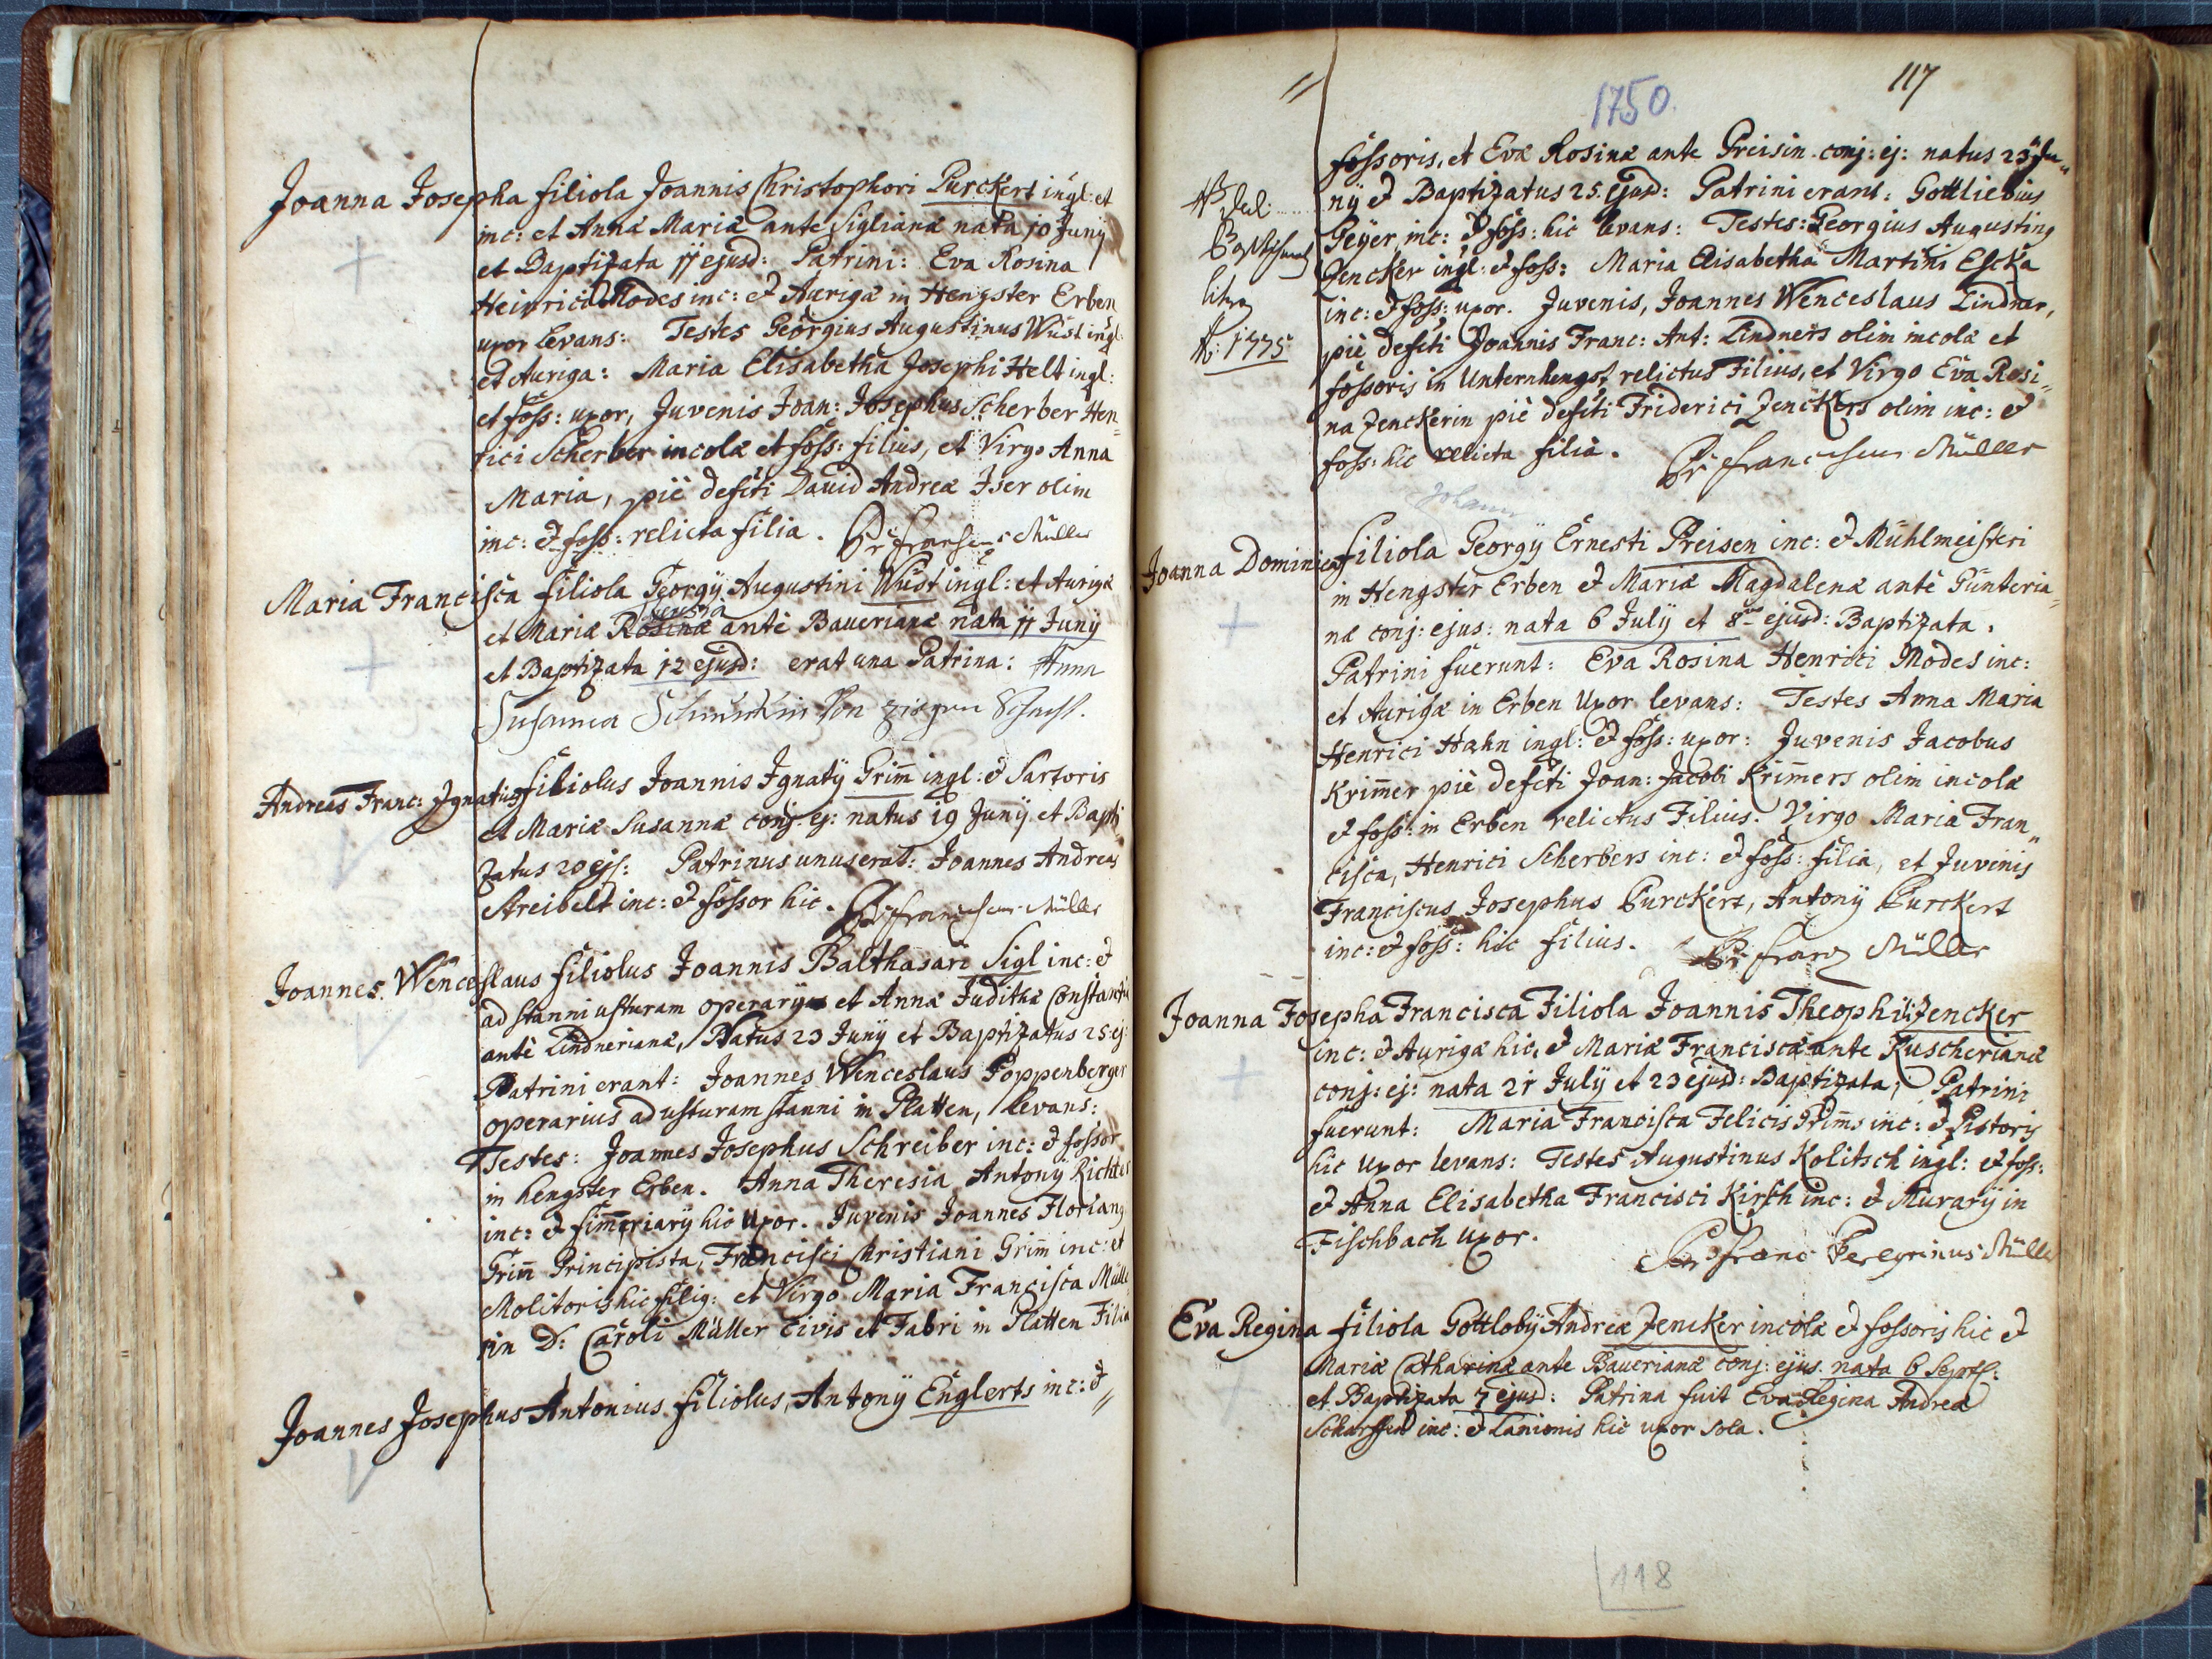 Joanna Josepha filiola Joannis Christophori Purckert ingl: et
inc: et Annæ Mariæ ante Siglianæ nata 10 Junÿ
et Baptizata 11 ejusd: Patrini: Eva Rosina
Heinrici Modes inc: & Aurigæ in Hengster Erben
uxor levans: Testes Georgius Augustinus Wüst ingl:
et Auriga: Maria Elisabetha Josephi Helt ingl:
et foss: uxor, Juvenis Joan: Josephus Scherber Hen=
rici Scherber incolæ et foss: filius, et Virgo Anna
Maria, piè defcti David Andreæ Iser olim
inc: & foss: relicta filia. Müller
Maria Francisca filiola Georgÿ Augustini Wüst ingl: et Aurigæ
et Mariæ Rosinæ antè Bauerianæ nata 11 Junÿ
et Baptizata 12 ejusd: erat una Patrina: Anna
Susanna
Andreas Franc: Ignatius filiolus Joannis Ignatÿ Grim̄ ingl: & Sartoris
et Mariæ Susannæ conj: ej: natus 19 Junÿ et Bapti
zatus 20 ejs: Patrinus unus erat: Joannes Andreas
Streibelt inc: & fossor hic. Müller
Joannes Wenceslaus filiolus Joannis Balthasari Sigl inc: &
ad stanni usturam operarÿ et Annæ Judithæ
antè Lindnerianæ, Natus 23 Junÿ et Baptizatus 25 ej:
Patrini erant: Joannes Wenceslaus Poppenberger
operarius ad usturam stanni in Platten, levans:
Testes: Joannes Josephus Schreiber inc: & fossor
in hengster Erben. Anna Theresia Antonÿ Richter
inc: & hic Uxor. Juvenis Joannes Florian9
Grim̄ Principista, Francisci Christiani Grim̄ inc: et
Molitoris hic fili9: et Virgo Maria Francisca Mülle
rin D: Caroli Müller Civis et Fabri in Platten Filia
Joannes Josephus Antonius filiolus, Antonÿ Englerts inc: &
117
1750.
fossoris, et Evæ Rosinæ ante Preisin conj: ej: natus 23 Ju=
nÿ & Baptizatus 25. ejusd: Patrini erant: Gottliebius
Geÿer, inc: & foss: hic levans: Testes: Georgius Augustin9
Jencker ingl: & foss: Maria Elisabetha Martini Escka
inc: & foss: uxor. Juvenis, Joannes Wenceslaus Lindner,
piè defcti Joannis Franc: Ant: Lindners olim incolæ et
fossoris in Unternhengst relictus Filius, et Virgo Eva Rosi=
na Jenckerin piè defcti Friderici Jenckers olim inc: &
foss: hic relicta filia. Müller
A: 1775
Johann
Joanna Dominica filiola Georgÿ Ernesti Preisen inc: & Mühlmeisteri
in Hengster Erben & Mariæ Magdalenæ antè Günteria=
næ conj: ejus: nata 6 Julÿ et 8va ejusd: Baptizata.
Patrini fuerunt: Eva Rosina Henrici Modes inc:
et Aurigæ in Erben Uxor levans: Testes Anna Maria
Henrici Hahn ingl: & foss: uxor: Juvenis Jacobus
Krim̄er piè defcti Joan: Jacobi Krim̄ers olim incolæ
& foss: in Erben relictus Filius. Virgo Maria Fran=
cisca, Henrici Scherbers inc: & foss: filia, et Juvenis
Franciscus Josephus Purckert, Antonÿ Purckert
inc: & foss: hic filius. Franz Müller
Joanna Josepha Francisca Filiola Joannis Theophili Jencker
inc: & Aurigæ hic, & Mariæ Franciscæ ante Ruscherianæ
conj: ej: nata 21 Julÿ et 23 ejusd: Baptizata, Patrini
fuerunt: Maria Francisca Felicis Grim̄s inc: & Pistoris
hic Uxor levans: Testes Augustinus Kolitsch ingl: & foss:
& Anna Elisabetha Francisci Kirsch inc: & Murarÿ in
Fischbach Uxor.
Franc Peregrinus Müller
Eva Regina filiola Gottlobÿ Andreæ Jencker incolæ & fossoris hic &
Mariæ Catharinæ ante Bauerianæ conj: ejus nata 6 Sept:
et Baptizata 7 ejusd: Patrina fuit Eva Regina Andreæ
inc: & Lanionis hic uxor sola.
118